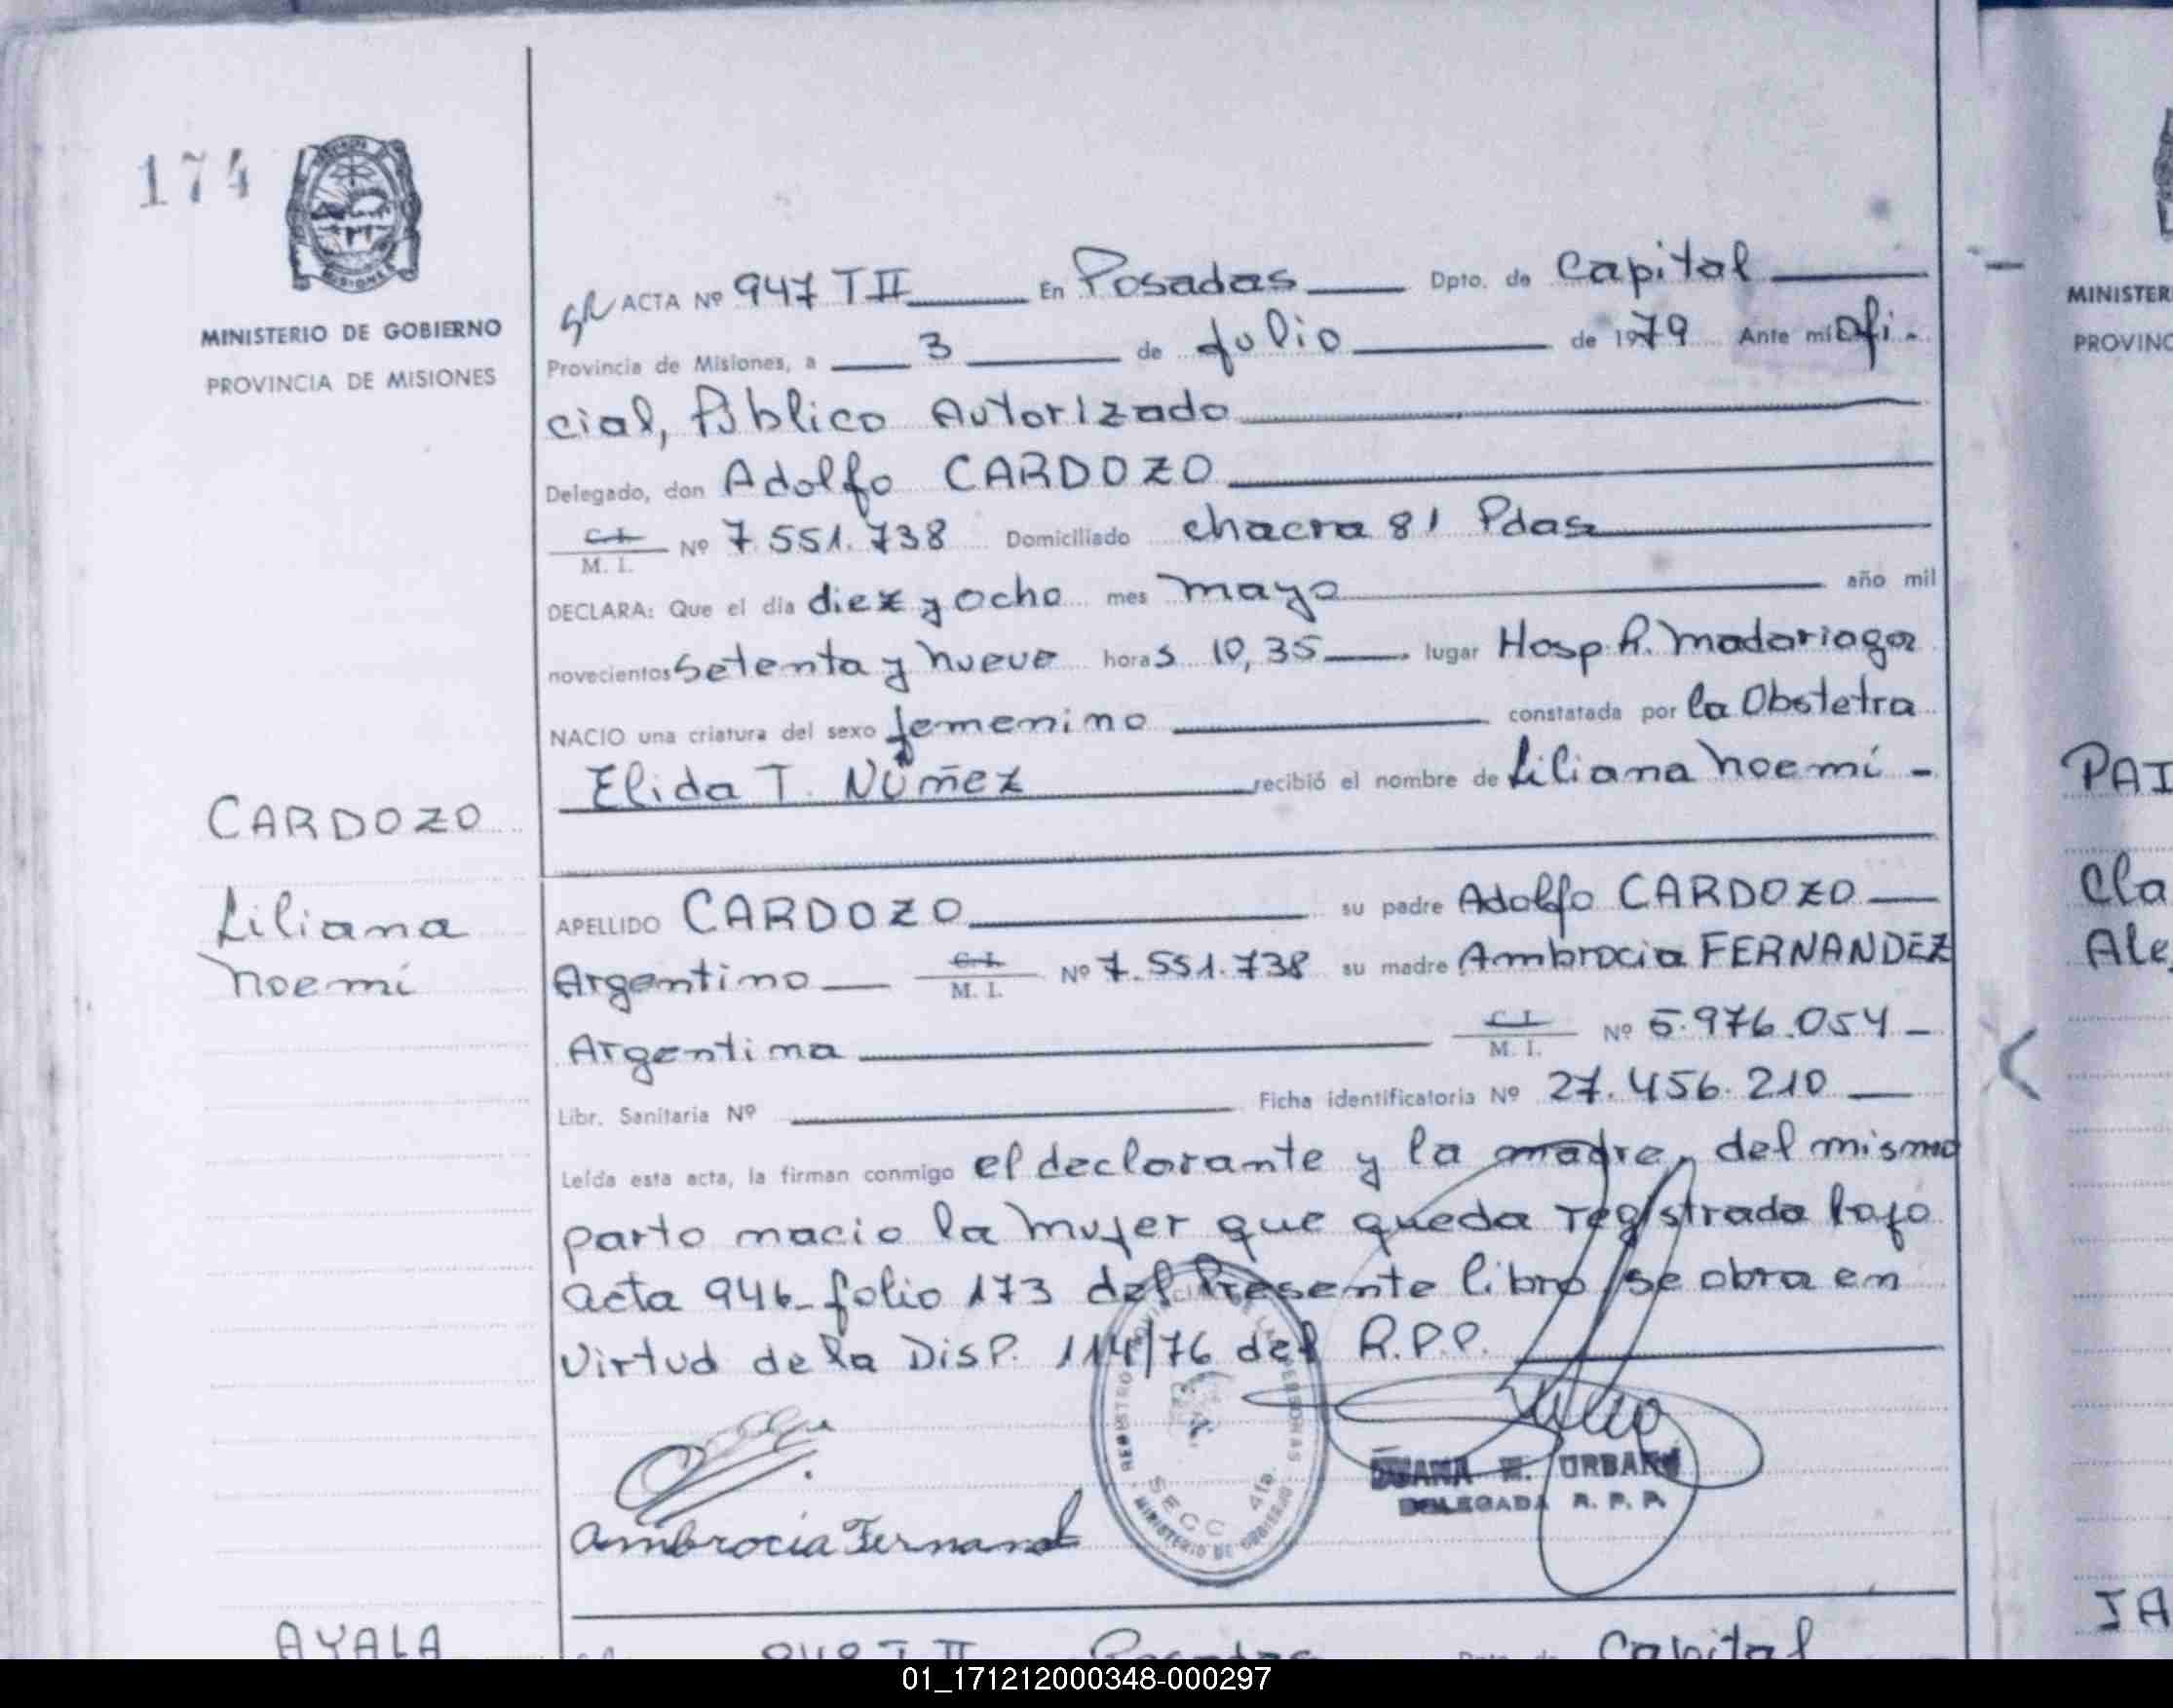 174
MINISTERIO DE GOBIERNO
PROVINCIA DE MISIONES
CARDOZO
Liliana
Noemí
AYALA
ACTA Nº 947 TII En Posadas Dpto. de Capital
Provincia de Misiones, a 3 de Julio de 1979 Ante mí Ofi-
cial, Público Autorizado
Delegado, don Adolfo CARDOZO
C.I. M. I. Nº 7.551.738 Domiciliado chacra 81 Pdas
DECLARA: Que el día diez y ocho mes mayo año mil
novecientos setenta y nueve horas 10,35 lugar Hosp. R. Madariaga
NACIO una criatura del sexo femenino constatada por la Obstetra
Elida T. Núñez recibió el nombre de Liliana Noemí -
APELLIDO CARDOZO su padre Adolfo CARDOZO
Argentino C.I. M. I. Nº 7.551.738 su madre Ambrocia FERNANDEZ
Argentina C.I. M. I. Nº 5.976.054
Libr. Sanitaria Nº Ficha identificatoria Nº 27.456.210
Leída esta acta, la firman conmigo el declarante y la madre, del mismo
parto nacio la mujer que queda registrada bajo
acta 946 folio 173 del Presente libro, se obra en
virtud de la DISP. 114/76 del R.P.P.
Ambrocia Fernand
REGISTRO PROVINCIAL DE LAS PERSONAS
SECC. 4ta.
MINISTERIO DE GOBIERNO
URBAN
DELEGADA R. P. P.
Capital
MINISTER
PROVINC
PAI
Cla
Ale
JA
01_171212000348-000297